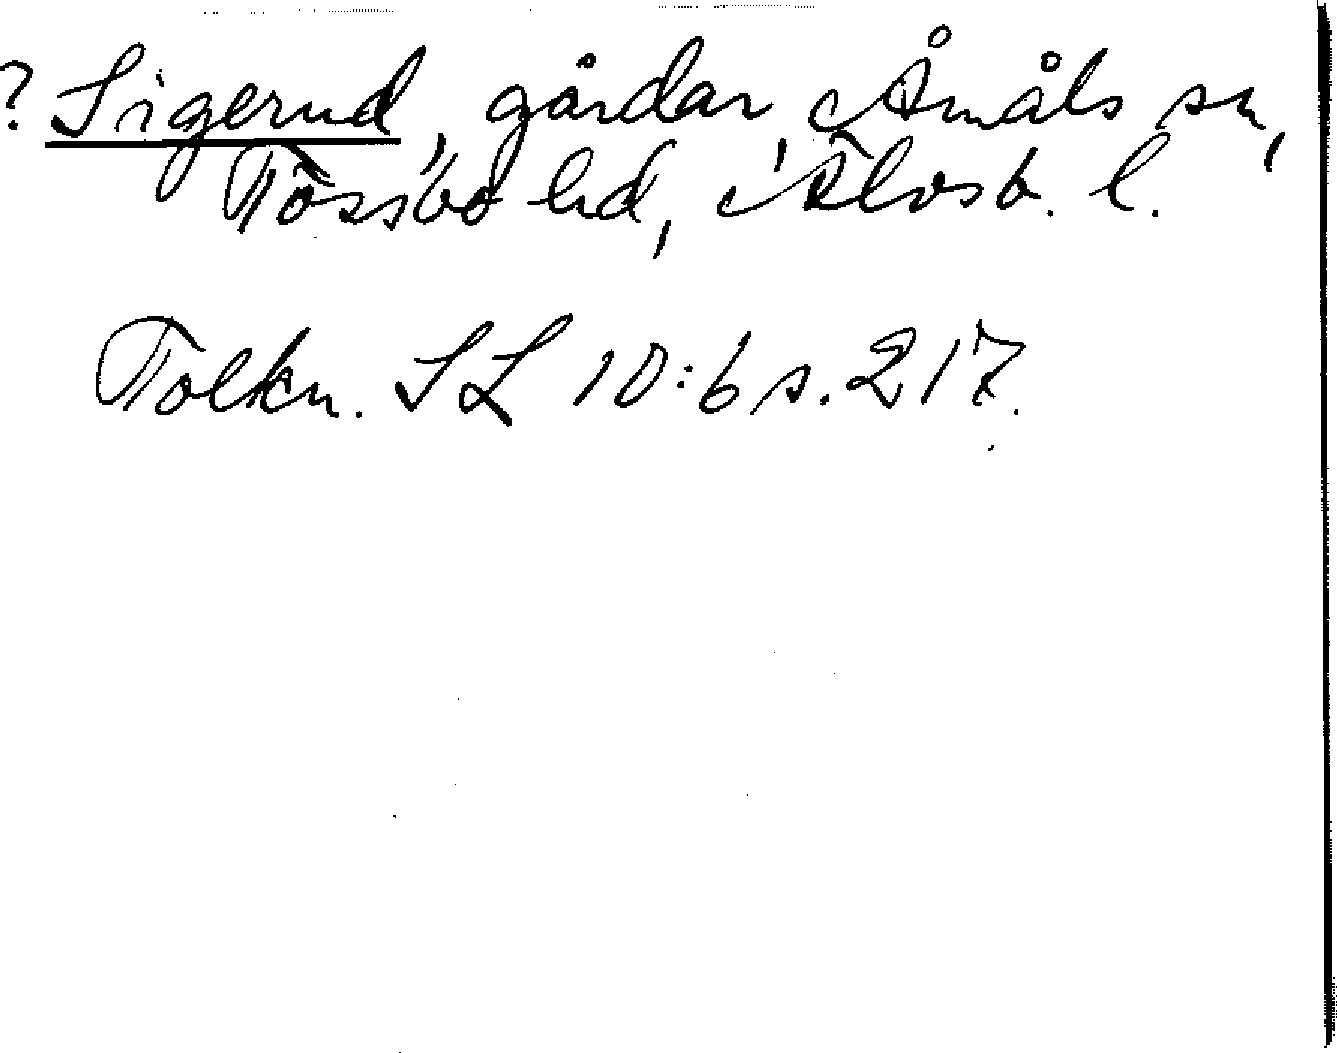 ? Sigerud, gårdar, Åmåls sn,
Tössbo hd, Älvsb. l.
Tolkn. SL 10:6 s. 217.